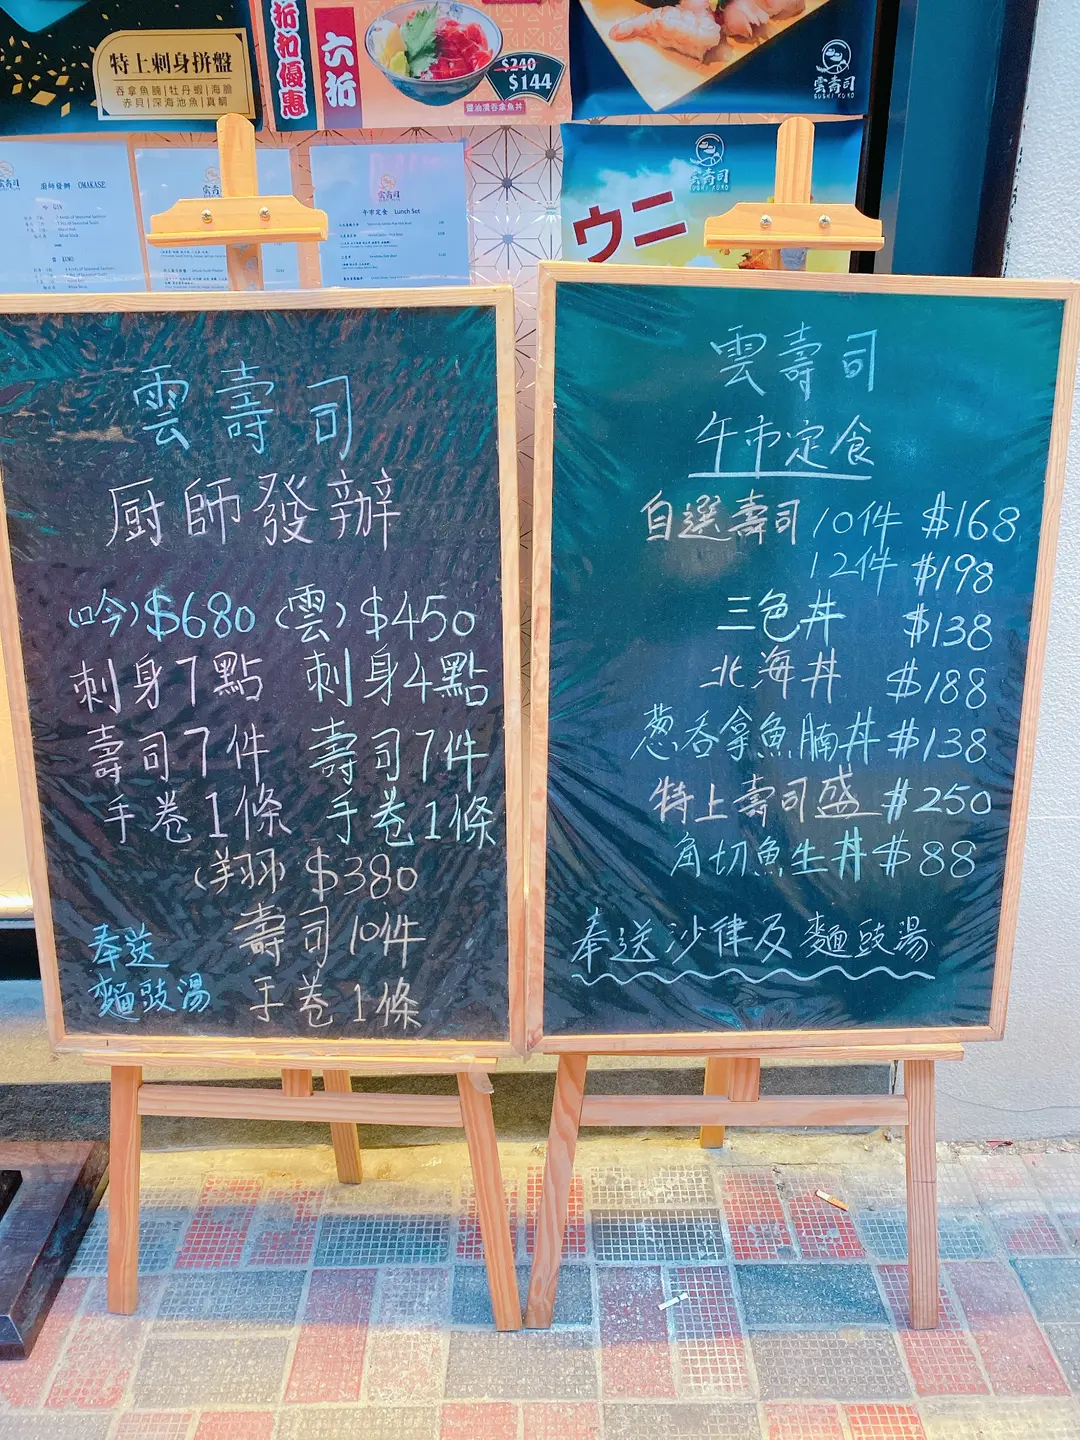 特上刺身拼盤
吞拿魚腩|牡丹蝦|海膽
赤貝|深海池魚|真鯛
折扣優惠
六折
$240
$144
醬油漬吞拿魚丼
雲壽司
SUSHI KUMO
廚師發辦 OMAKASE
午市定食 Lunch Set
雲壽司
ウニ
雲壽司
厨師發辦
(吟) $680 (雲) $450
刺身7點 刺身4點
壽司7件 壽司7件
手卷1條 手卷1條
(翔) $380
壽司10件
手卷1條
奉送
麵豉湯
雲壽司
午市定食
自選壽司 10件 $168
12件 $198
三色丼 $138
北海丼 $188
葱吞拿魚腩丼 $138
特上壽司盛 $250
角切魚生丼 $88
奉送沙律及麵豉湯